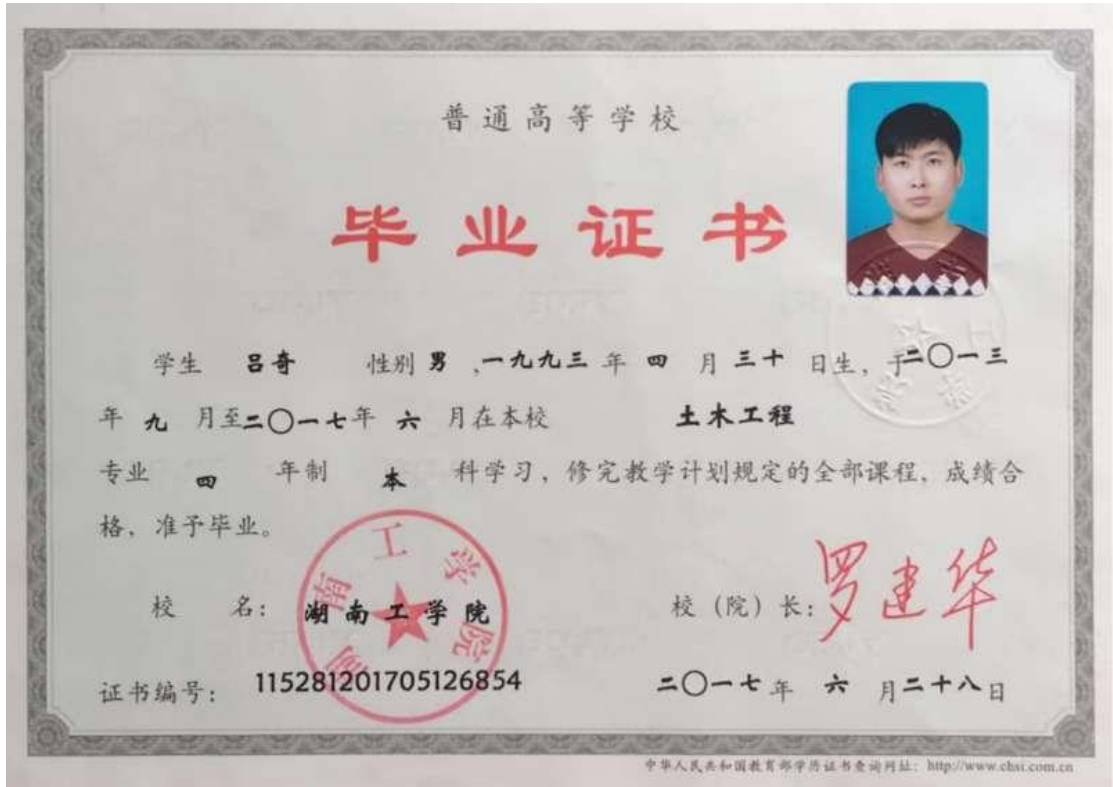 普通高等学校
毕业证书
学生 吕奇 性别 男 ,一九九三 年 四 月 三十 日生, 于二〇一三
年 九 月至二〇一七年 六 月在本校 土木工程
专业 四 年制 本 科学习, 修完教学计划规定的全部课程, 成绩合
格, 准予毕业。
湖南工学院
校 名: 湖南工学院 校 (院) 长: 罗建华
证书编号: 115281201705126854 二〇一七年 六 月二十八日
中华人民共和国教育部学历证书查询网址: http://www.chsi.com.cn